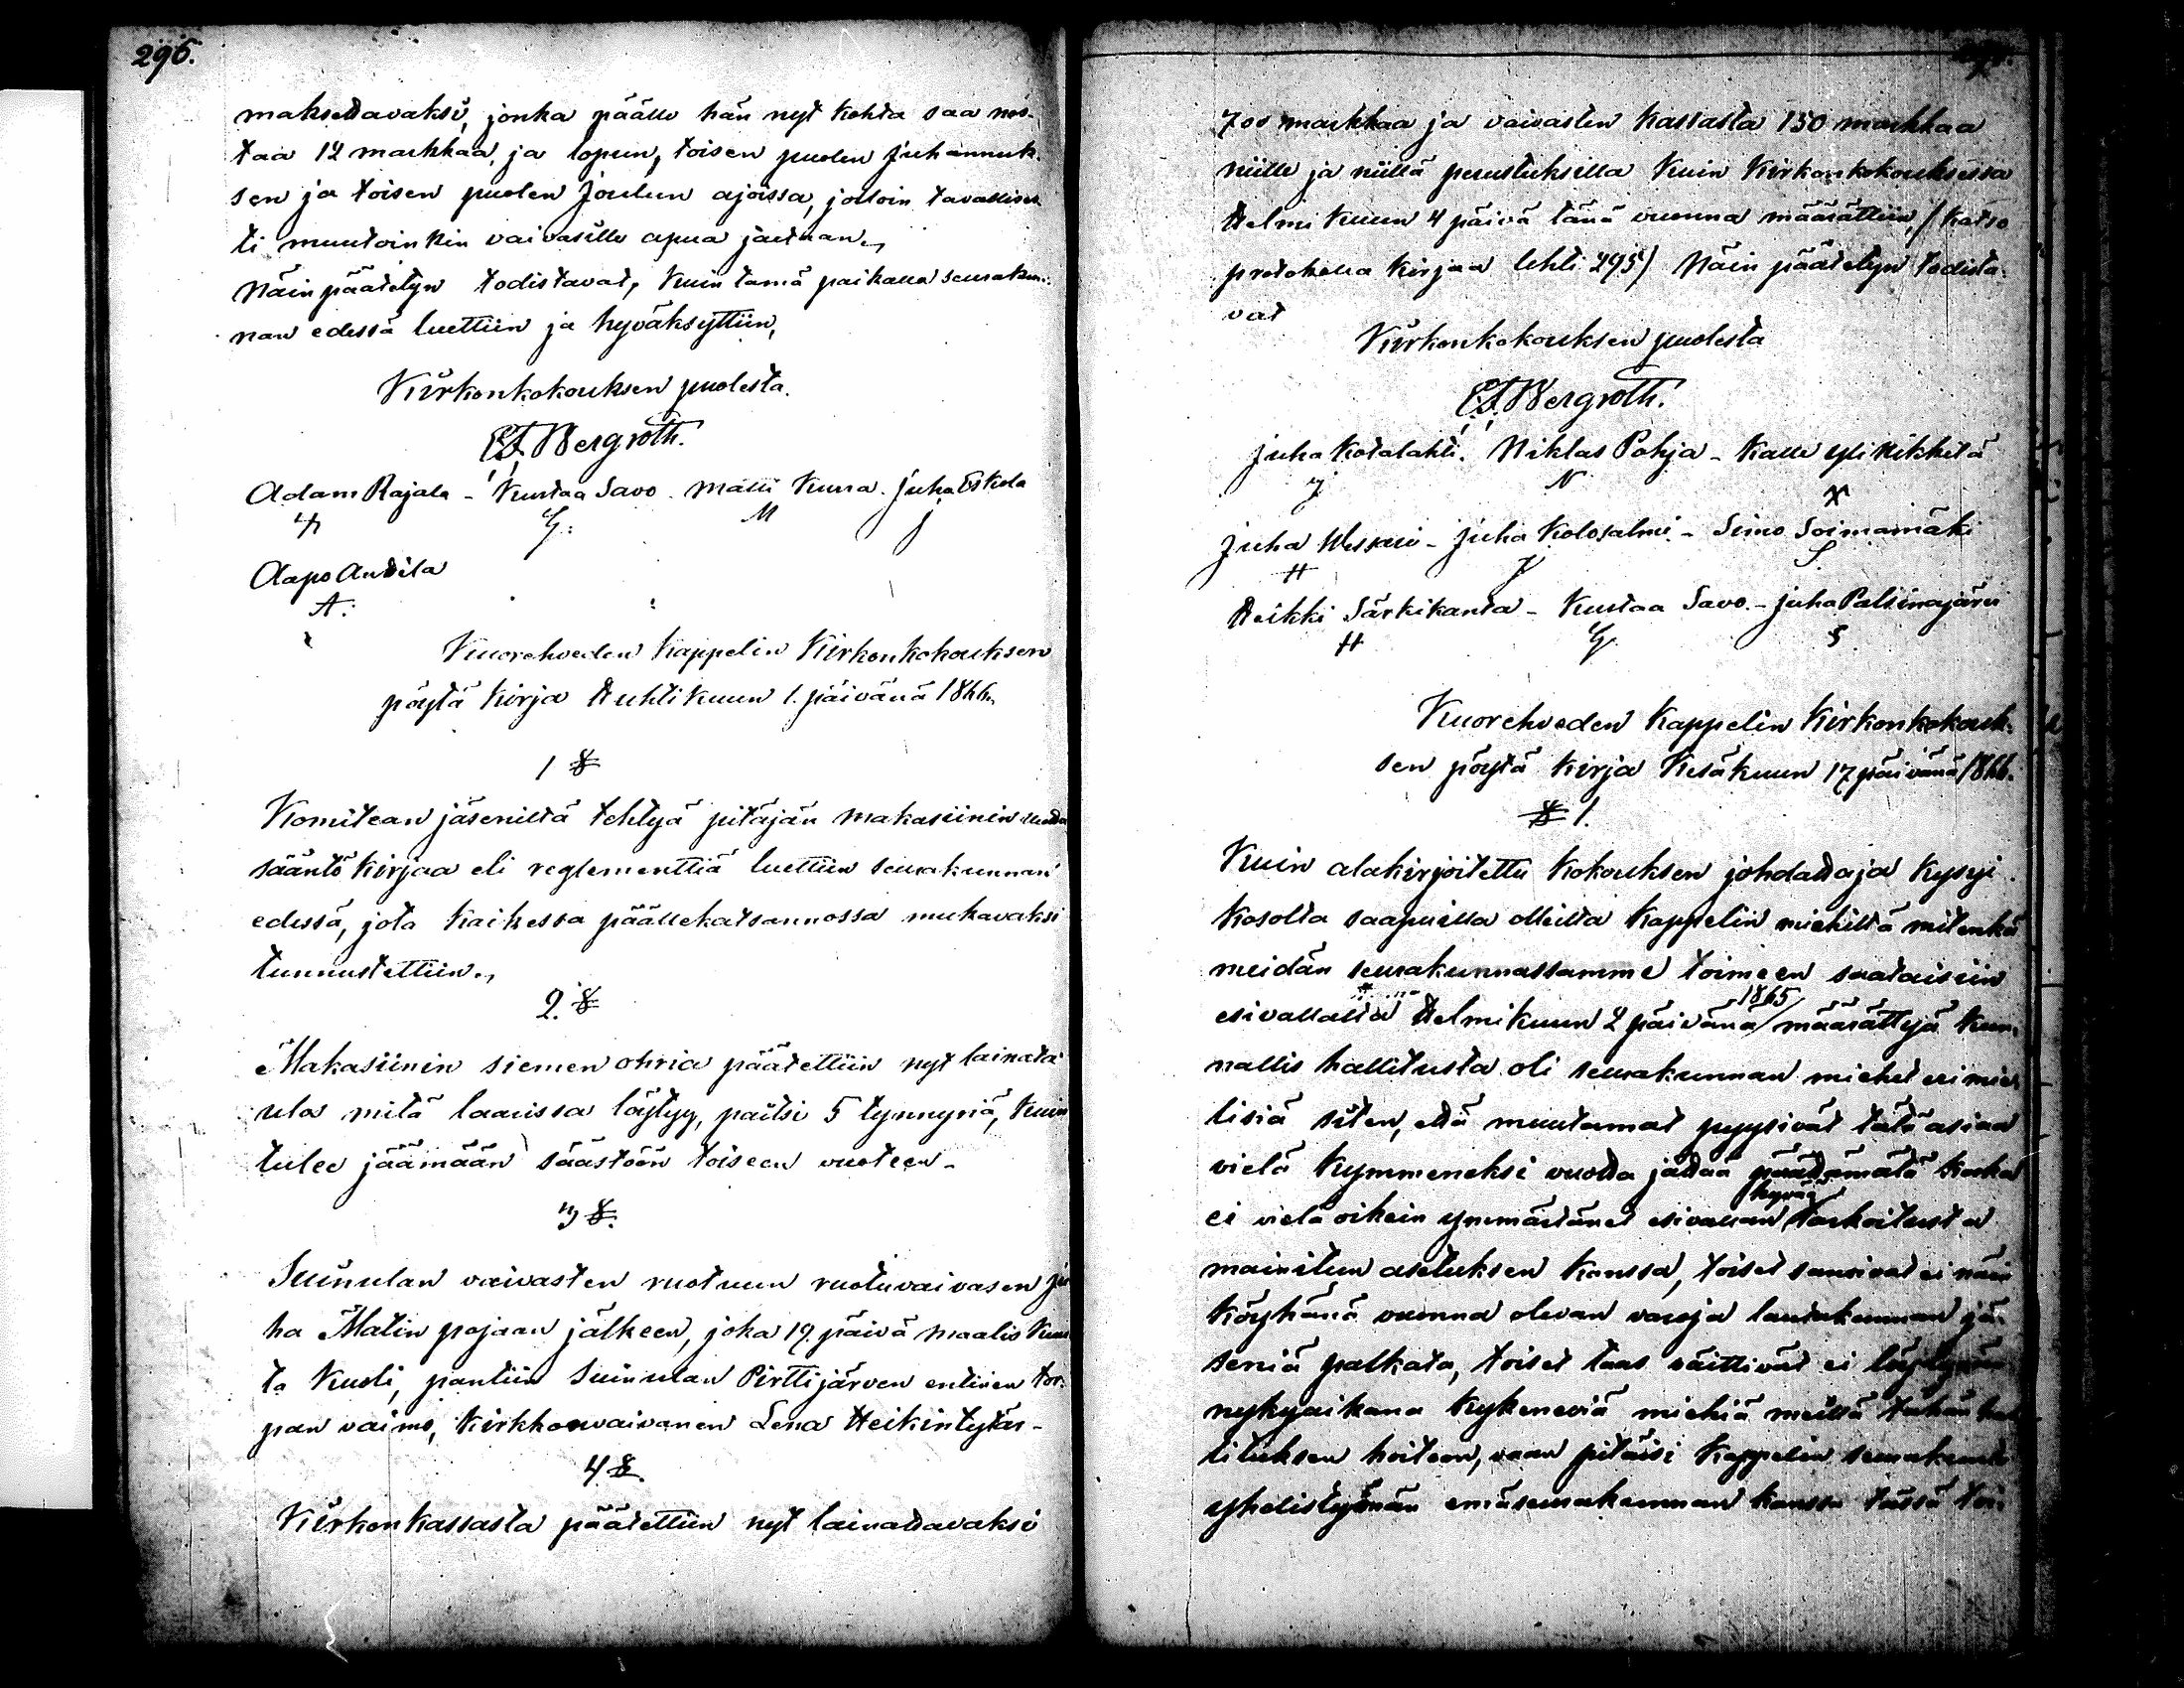 296.
maksettavaksi, jonka päälle hän nyt kohta saa nos-
taa 12 markkaa, ja lopun, toisen puolen Juhannuk-
sen ja toisen puolen Joulun ajoissa, jolloin tavallises-
ti muutoinkin vaivasille apua jaetaan.,
Näin päätetyn todistavat, kuin tämä paikalla seurakun-
nan edessä luettiin ja hyväksyttiin,
Kirkonkokouksen puolesta.
E.F. Bergroth.
Adam Rajala - Kustaa Savo. Matti Kuusa. Juha Eskola
G: M J
Aapo Anttila
A:
Kuorehveden Kappelin Kirkonkokouksen
pöytä kirja Huhtikuun 1. päivänä 1866.
1 §
Komitean jäseniltä tehtyä pitäjän makasiinin uutta
sääntö kirjaa eli reglementtiä luettiin seurakunnan
edessä, jota kaikessa päällekatsannossa mukavaksi
tunnustettiin.,
2. §
Makasiinin siemen ohria päätettiin nyt lainata
ulos mitä laarissa löytyy, paitsi 5 tynnyriä, kuin
tulee jäämään säästöön toiseen vuoteen -
3 §.
Suinulan vaivasten ruotuun ruotuvaivasen Ju
ha Matin pojaan jälkeen, joka 19. päivä maalis kuu
ta kuoli, pantiin Suinulan Pirttijärven entinen tor-
pan vaimo, kirkkonvaivanen Lena Heikintytär -
4 §.
Kirkon kassasta päätettiin nyt lainattavaksi
700 markkaa ja vaivasten kassasta 150 markkaa
niille ja niillä perustuksilla kuin Kirkonkokouksessa
Helmi kuun 4 päivä tänä vuonna määrättiin, / katso
protokolla kirjaa lehti 295/ Näin päätetyn todista-
vat
Kirkonkokouksen puolesta
E.F. Bergroth.
Juha Kotalahti. Niklas Pohja - Kalle yli Nikkilä
J N X
Juha - Juha Kolosalmi - Simo Soimamäki
H J S
Heikki Särkikanta - Kustaa Savo. - Juha Palsinajärvi
H G S
Kuorehveden Kappelin Kirkonkokouk-
sen pöytä kirja Kesäkuun 17 päivänä 1866.
§ 1.
Kuin alakirjoitettu kokouksen johdattaja kysyi
kosolta saapuilla olleilta Kappelin miehiltä mitenkä
meidän seurakunnassamme toimeen saataisiin
esivallalta Helmikuun 2 päivänä 1865 määrättyä kun-
nallis hallitusta oli seurakunnan miehet eri mie-
lisiä siten, että muutamat pyysivät tätä asiaa
vielä kymmeneksi vuotta jättää päättämätä koska
ei vielä oikein ymmärtänet esivallan hyvää tarkoitusta
mainitun asetuksen kanssa, toiset sanoivat ei näin
köyhänä vuonna olevan varoja lautakunnan jä-
seniä palkata, toiset taas väittivät ei löytyvän
nykyaikana kykeneviä miehiä meillä tähän hal
lituksen hoitoon, vaan pitäisi Kappelin seurakunta
yhdistymän emäseurakunnan kanssa tässä toi-